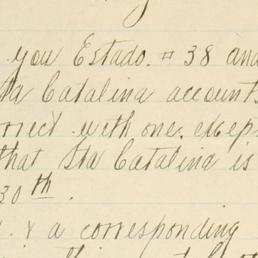 you Estado. # 38 and
Sta Catalina accounts
rrect with one excep
that Sta Catalina is
30th.
. & a corresponding